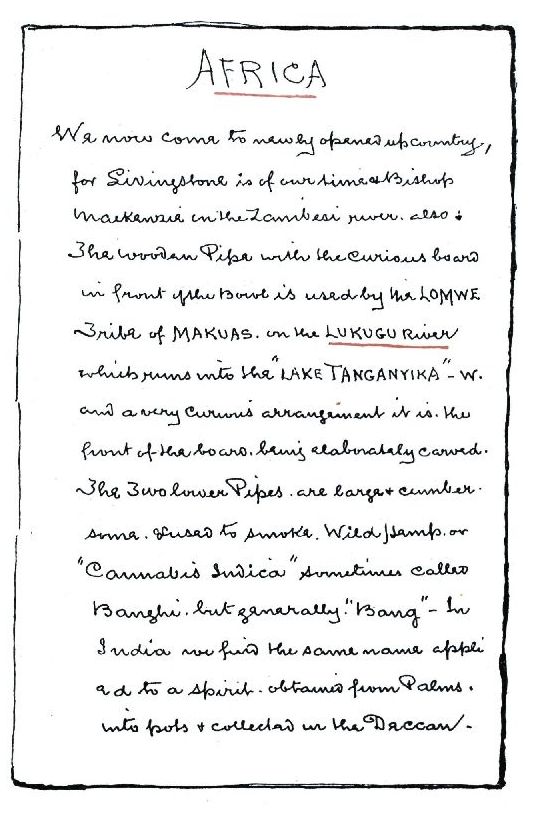 AFRICA
We now come to newly opened up country,
for Livingstone is of our time & Bishop
Mackenzie on the Zambesi river. also :
The wooden Pipe with the curious board
in front of the Bowl is used by the LOMWE
Tribe of MAKUAS. on the LUKUGU River
which runs into the "LAKE TANGANYIKA" - W.
and a very curious arrangement it is. the
front of the board. being elaborately carved.
The Two lower Pipes. are large & cumber-
some. & used to smoke. Wild Hemp. or
"Cannabis Indica" sometimes called
Banghi. but generally. "Bang" - In
India we find the same name appli
ed to a spirit. obtained from Palms.
into pots & collected in the Deccan -